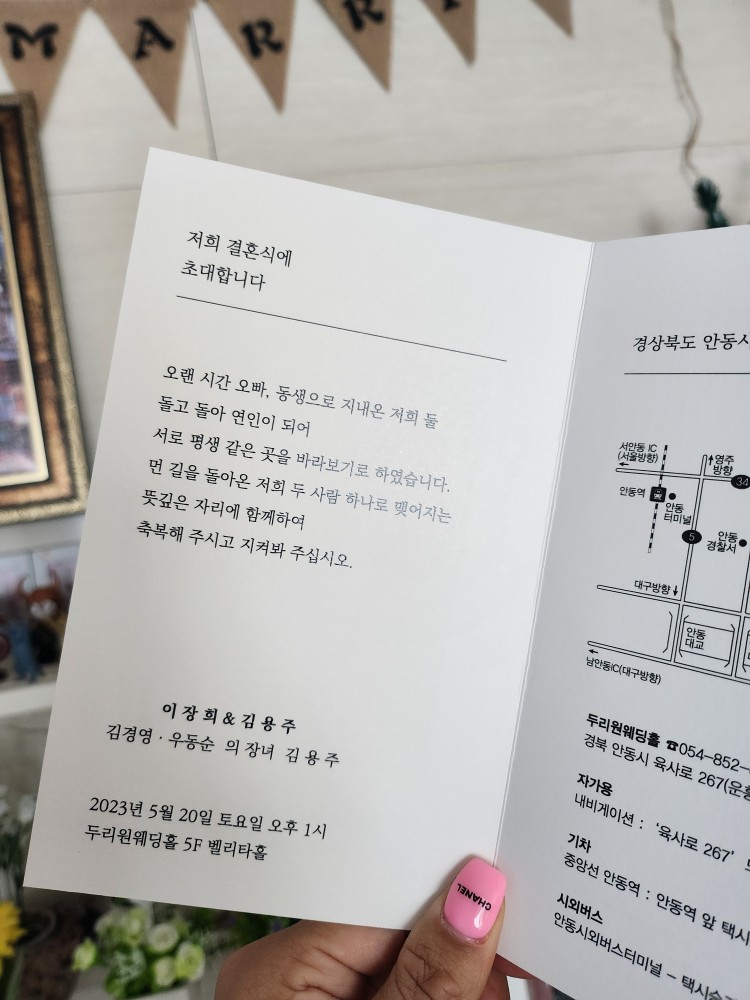 MARR
저희 결혼식에
초대합니다
오랜 시간 오빠, 동생으로 지내온 저희 둘
돌고 돌아 연인이 되어
서로 평생 같은 곳을 바라보기로 하였습니다.
먼 길을 돌아온 저희 두 사람 하나로 맺어지는
뜻깊은 자리에 함께하여
축복해 주시고 지켜봐 주십시오.
이장희&김용주
김경영 · 우동순 의 장녀 김용주
2023년 5월 20일 토요일 오후 1시
두리원웨딩홀 5F 벨리타홀
경상북도 안동시
서안동 IC
(서울방향)
영주
방향
34
안동역
안동
터미널
5
안동
경찰서
대구방향
안동
대교
남안동IC(대구방향)
두리원웨딩홀 ☎054-852-
경북 안동시 육사로 267(운흥
자가용
내비게이션 : '육사로 267'
기차
중앙선 안동역 : 안동역 앞 택시
시외버스
안동시외버스터미널 - 택시승
CHANEL